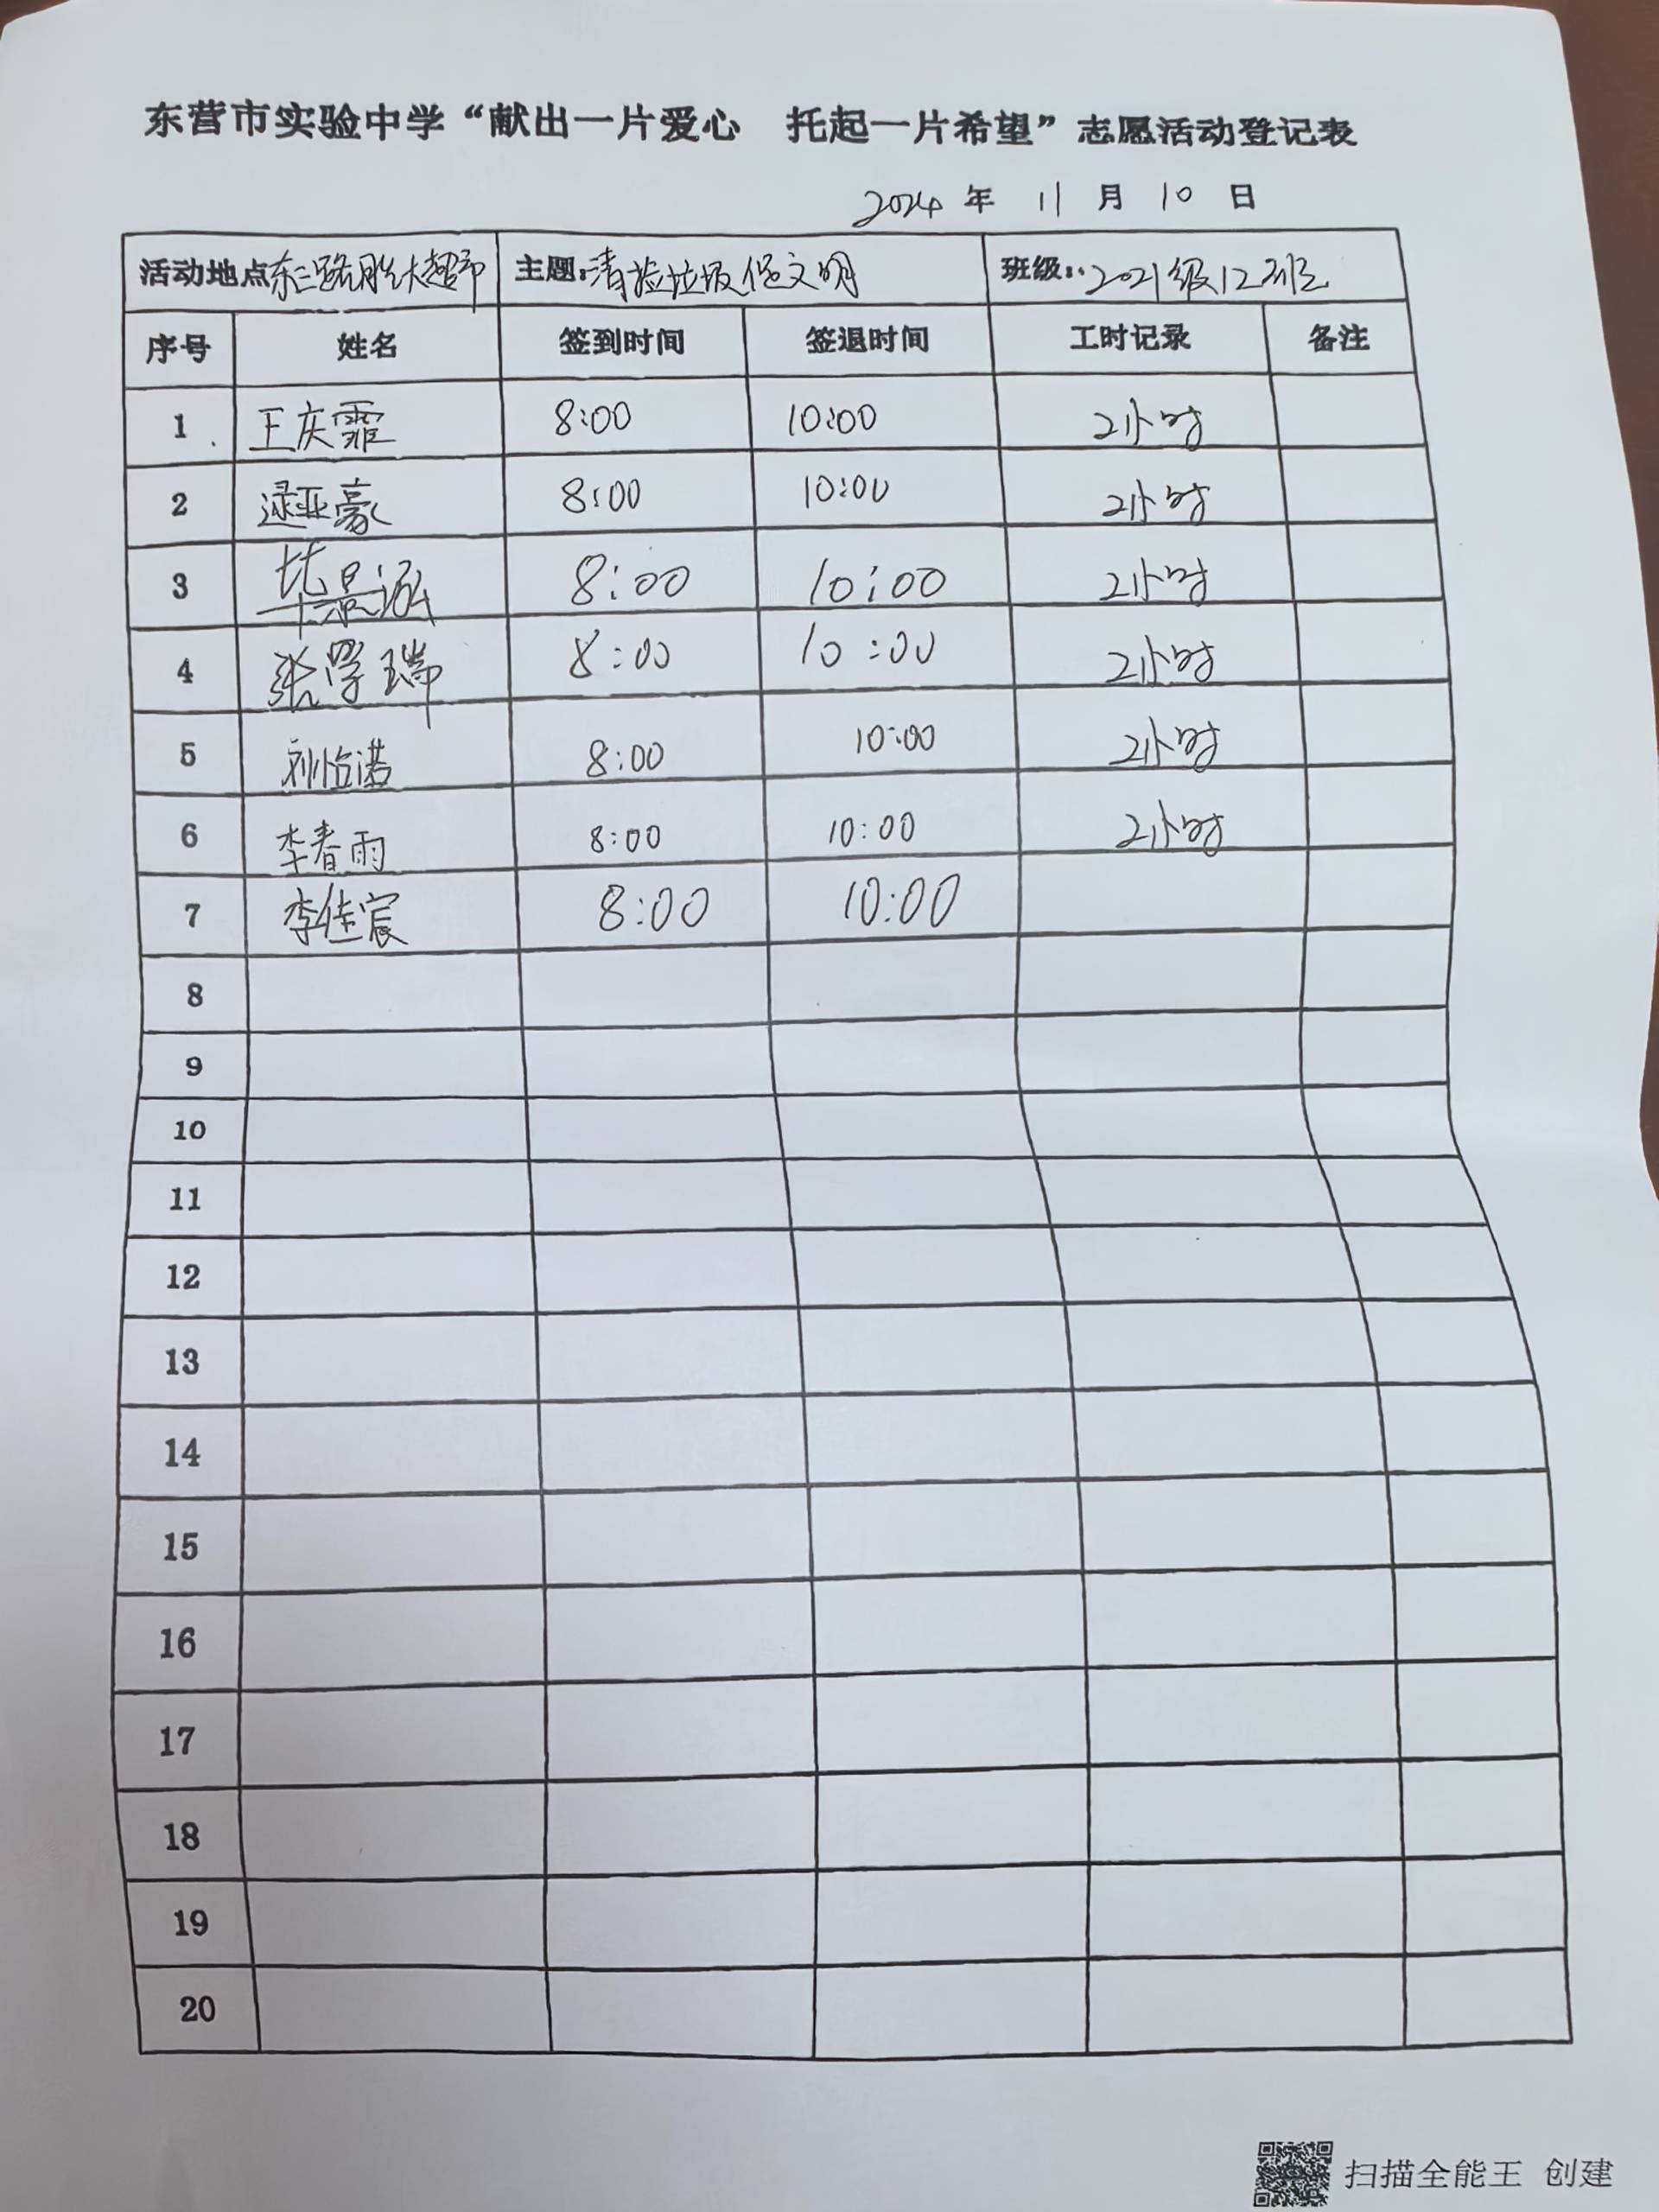 东营市实验中学“献出一片爱心 托起一片希望”志愿活动登记表
2024 年 11 月 10 日
活动地点东三路胜大超市 主题:清捡垃圾促文明 班级:2021级12班
序号 姓名 签到时间 签退时间 工时记录 备注
1 王庆霏 8:00 10:00 2小时
2 逯亚豪 8:00 10:00 2小时
3 毕景泓 8:00 10:00 2小时
4 张学瑞 8:00 10:00 2小时
5 刘怡诺 8:00 10:00 2小时
6 李春雨 8:00 10:00 2小时
7 李佳宸 8:00 10:00
8
9
10
11
12
13
14
15
16
17
18
19
20
扫描全能王 创建